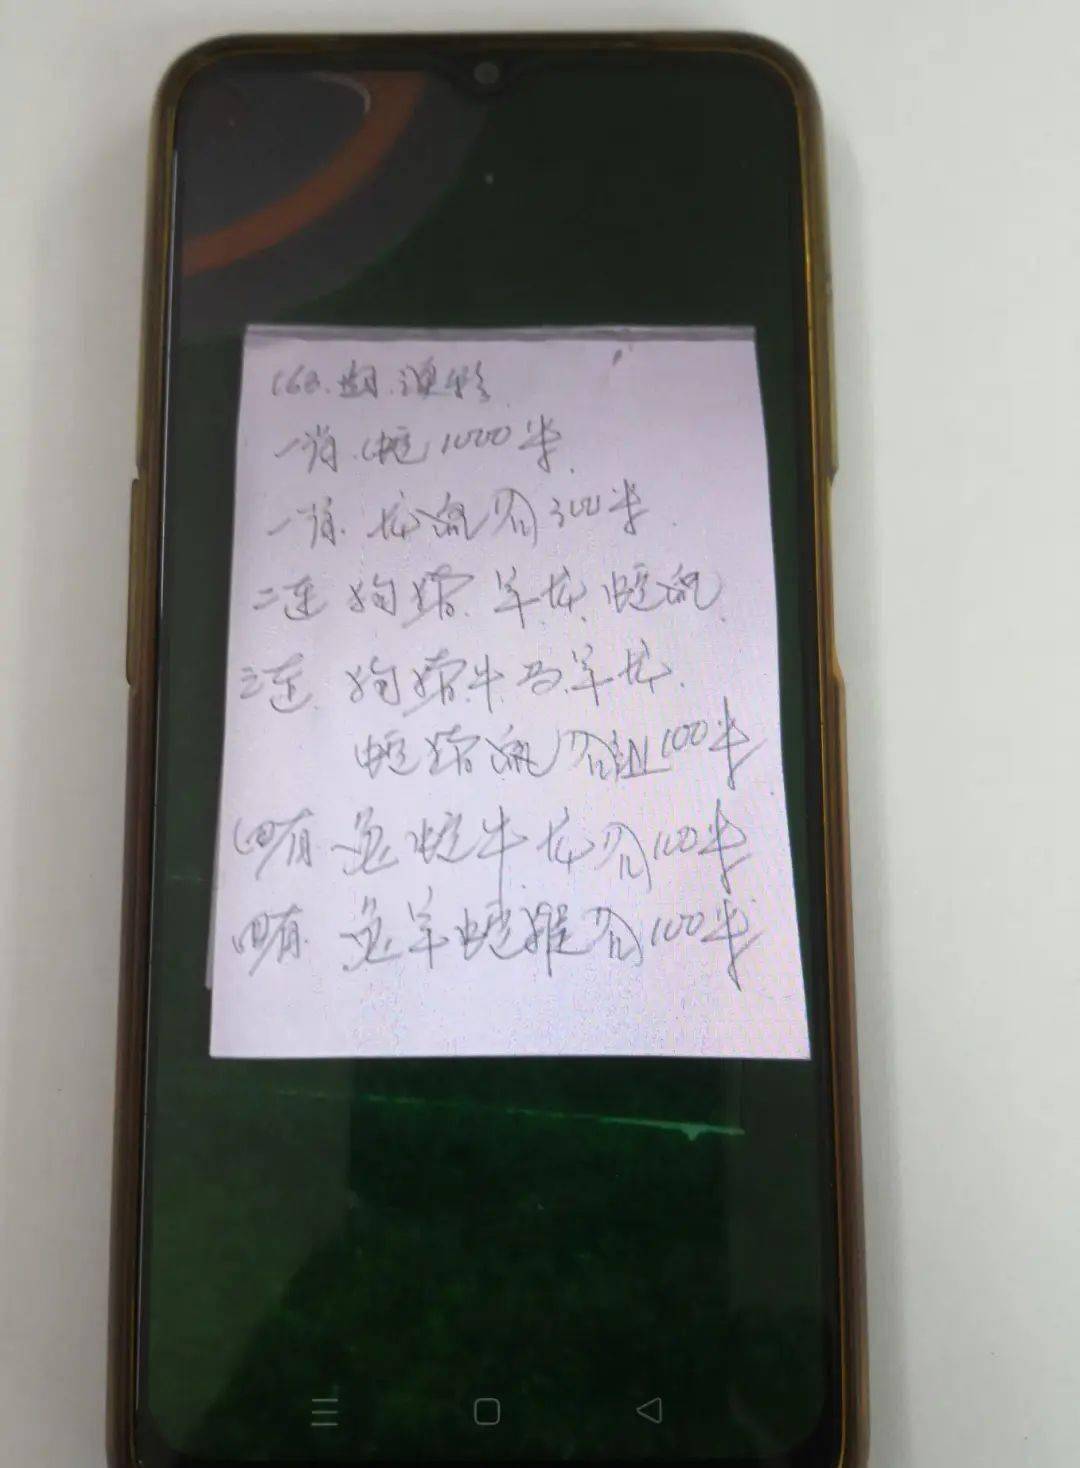 163.期.澳彩
一肖.蛇1000半.
一肖.龙兔各300半.
二连 狗猪.羊龙.蛇兔.
三连.狗猪牛.马羊龙.
蛇猪兔各组100半.
四肖 兔蛇牛龙各100半
四肖.兔羊蛇猴各100半